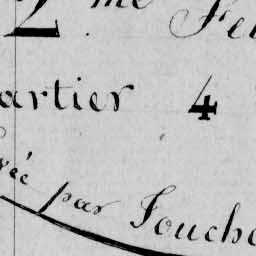 2.me Fe
artier 4
rée par Fouche